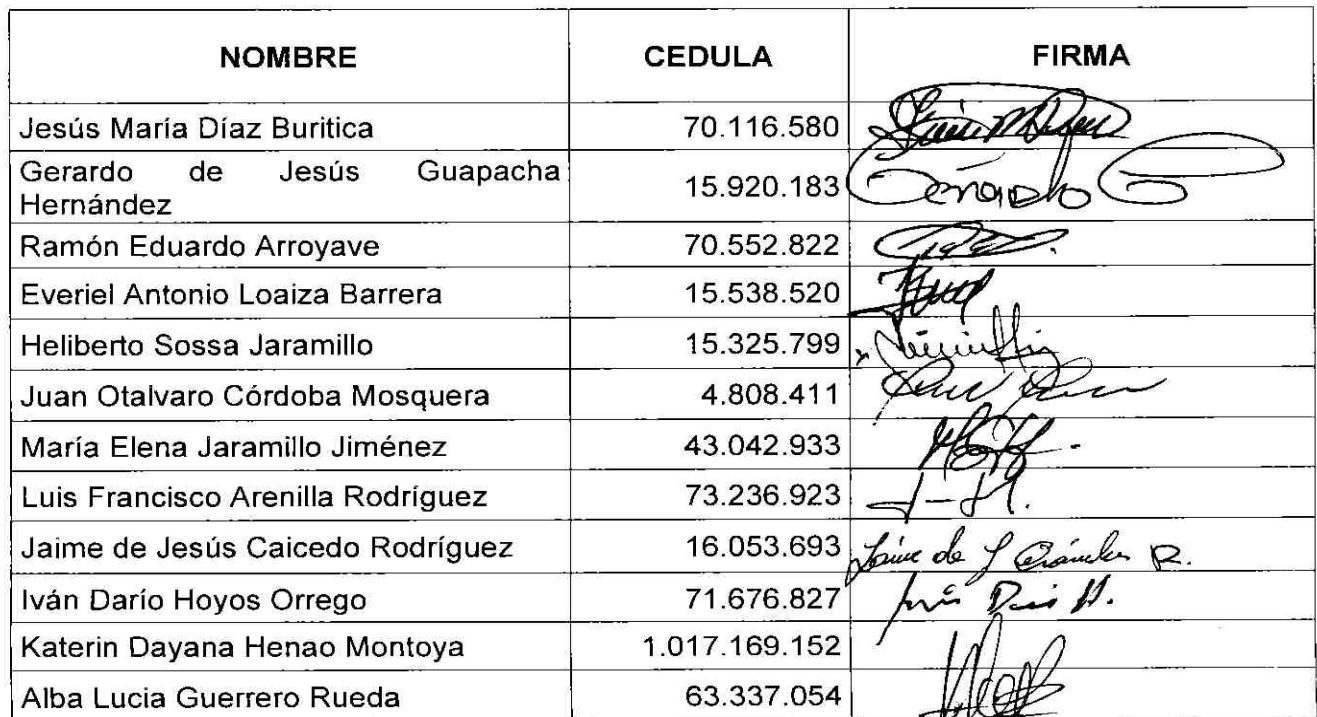 NOMBRE CEDULA FIRMA
Jesús María Díaz Buritica 70.116.580
Gerardo de Jesús Guapacha
Hernández 15.920.183 Gerardo G
Ramón Eduardo Arroyave 70.552.822
Everiel Antonio Loaiza Barrera 15.538.520
Heliberto Sossa Jaramillo 15.325.799
Juan Otalvaro Córdoba Mosquera 4.808.411
María Elena Jaramillo Jiménez 43.042.933
Luis Francisco Arenilla Rodríguez 73.236.923
Jaime de Jesús Caicedo Rodríguez 16.053.693 Jaime de J R.
Iván Darío Hoyos Orrego 71.676.827
Katerin Dayana Henao Montoya 1.017.169.152
Alba Lucia Guerrero Rueda 63.337.054